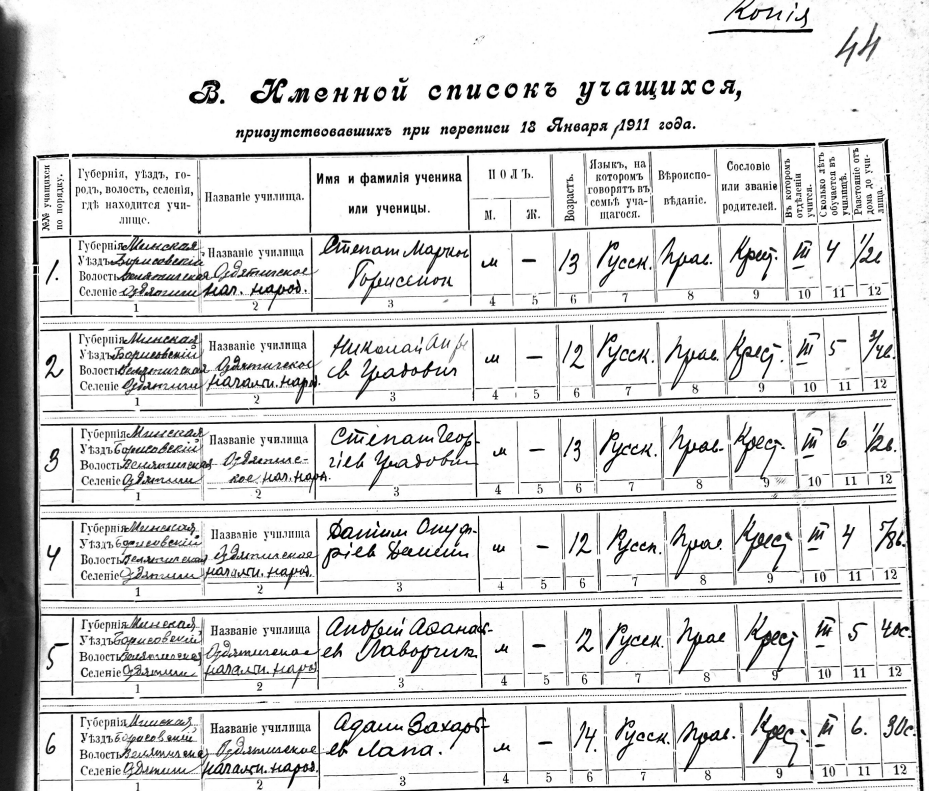 Копія
44
В. Именной списокъ учащихся,
присутствовавшихъ при переписи 18 Января 1911 года.
№№ учащихся по порядку.
Губернія, уѣздъ, городъ, волость, селенія, гдѣ находится училище.
Названіе училища.
Имя и фамилія ученика или ученицы.
ПОЛЪ.
М.
Ж.
Возрастъ.
Языкъ, на которомъ говорятъ въ семьѣ учащагося.
Вѣроисповѣданіе.
Сословіе или званіе родителей.
Въ которомъ отдѣленіи учится.
Сколько лѣтъ обучается въ училищѣ.
Разстояніе отъ дома до училища.
1.
Губернія Минская
Уѣздъ Борисовскій
Волость
Селеніе Оздятичи
Названіе училища
Оздятичское
нач. народ.
Степан Марков
м – 13 Русск. Прав. Крест. III 4 1/2 в
1 2 3 4 5 6 7 8 9 10 11 12
2
Губернія Минская
Уѣздъ Борисовскій
Волость
Селеніе Оздятичи
Названіе училища
Оздятичское
начальн. народ.
Николай
ев Градович
м – 12 Русск. Прав. Крест. III 5
1 2 3 4 5 6 7 8 9 10 11 12
3
Губернія Минская
Уѣздъ Борисовскій
Волость
Селеніе Оздятичи
Названіе училища
Оздятичс-
кое нач. нарн.
Степан Геор-
гіев Градович
м – 13 Русск. Прав. Крест. III 6 1/2 в.
1 2 3 4 5 6 7 8 9 10 11 12
4
Губернія Минская
Уѣздъ Борисовскій
Волость
Селеніе Оздятичи
Названіе училища
Оздятичское
начальн. народ.
Даниил Онуф-
ріев
м – 12 Русск. Прав. Крест III 4 5/8 в.
1 2 3 4 5 6 7 8 9 10 11 12
5
Губернія Минская
Уѣздъ Борисовскій
Волость
Селеніе Оздятичи
Названіе училища
Оздятичское
начальн. народ
Андрей Афанась-
ев Лаворчик
м – 12 Русск. Прав Крест III 5 40 с.
1 2 3 4 5 6 7 8 9 10 11 12
6
Губернія Минская
Уѣздъ Борисовскій
Волость
Селеніе Оздятичи
Названіе училища
Оздятичское
начальн. народ.
Адам Захарь-
ев Лапа.
м – 14. Русск. Прав. Крест. III 6. 30 с.
1 2 3 4 5 6 7 8 9 10 11 12